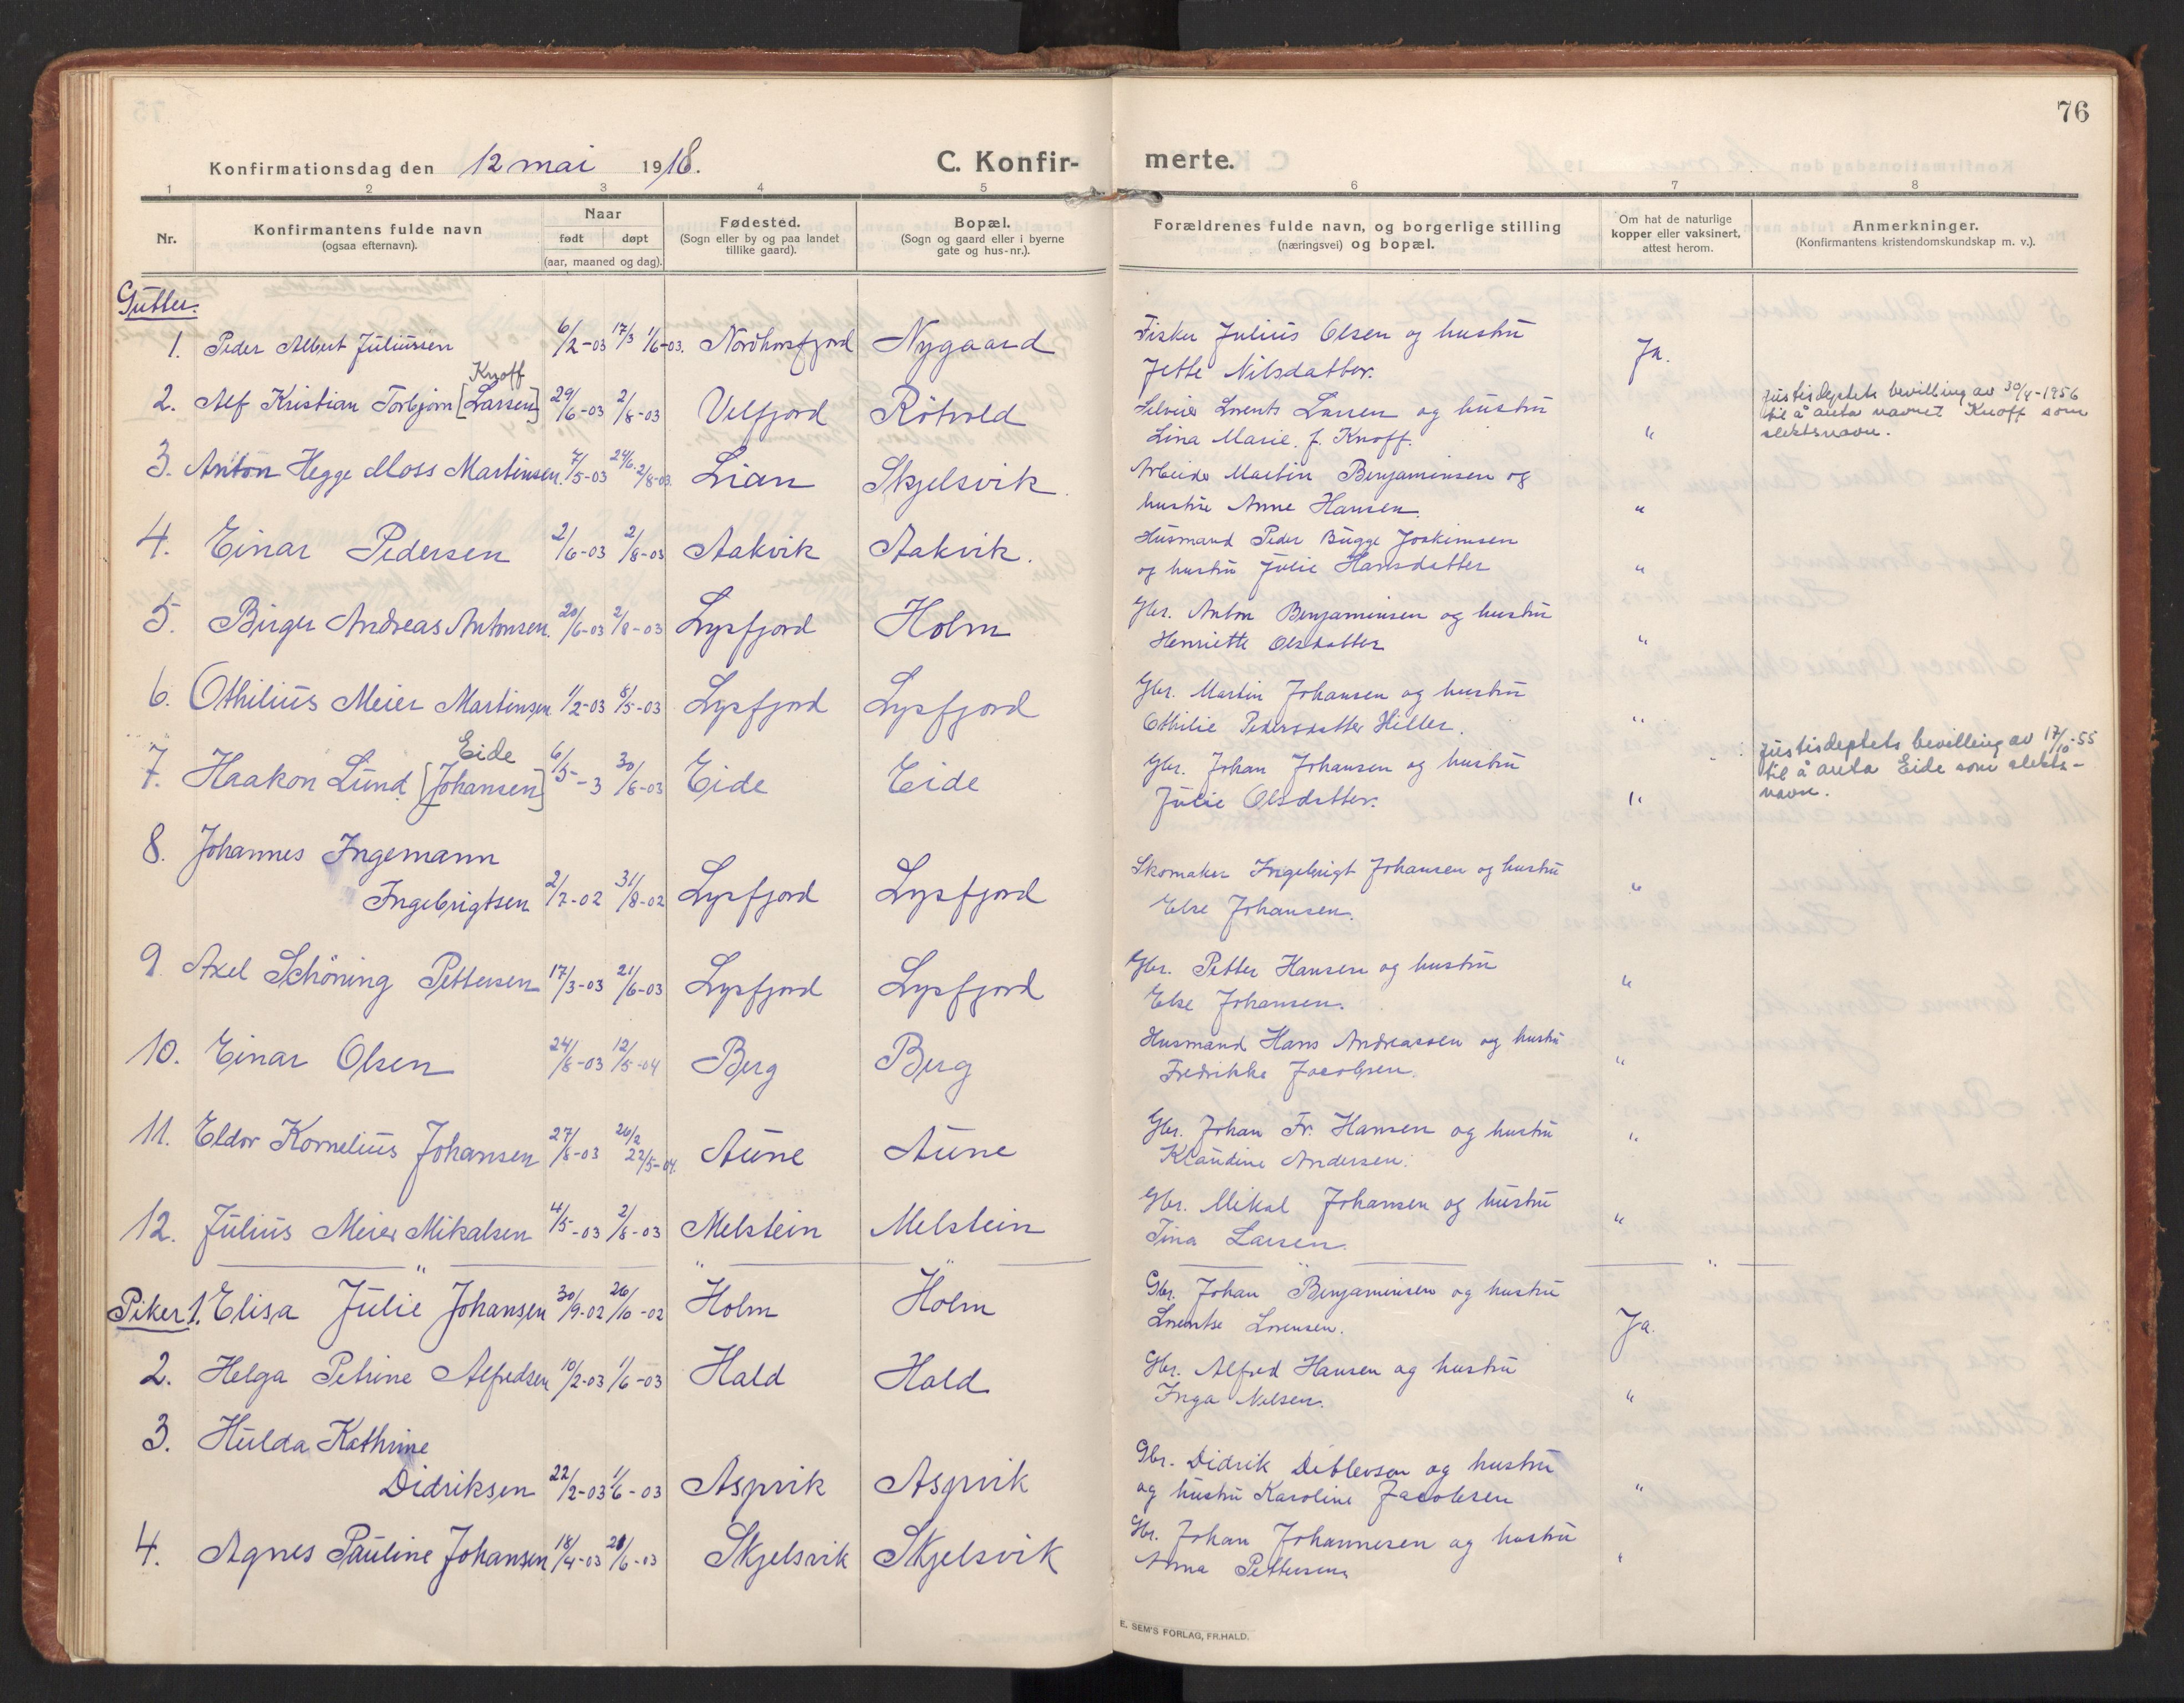 76
Konfirmationsdag den 12 mai 1918. C. Konfir- merte.
1 2 3 4 5 6 7 8
Nr.
Konfirmantens fulde navn
(ogsaa efternavn).
Naar
født døpt
(aar, maaned og dag).
Fødested.
(Sogn eller by og paa landet
tillike gaard).
Bopæl.
(Sogn og gaard eller i byerne
gate og hus-nr.).
Forældrenes fulde navn, og borgerlige stilling
(næringsvei) og bopæl.
Om hat de naturlige
kopper eller vaksinert,
attest herom.
Anmerkninger.
(Konfirmantens kristendomskundskap m. v.).
Gutter.
1. Peder Albert Juliussen 6/2-03 17/3 1/6-03. Nordhorsfjord Nygaard Fisker Julius Olsen og hustru
Jette Nilsdatter. Ja.
Knoff
2. Alf Kristian Torbjørn [Larsen] 29/6-03 2/8-03 Velfjord Rötvold Lorents Larsen og hustru
Lina Marie f. Knoff. "
Justisdeptets bevilling av 30/4-1956
til å anta navnet Knoff som
slektsnavn.
3. Anton Hegge Moss Martinsen. 7/5-03 24/6. 2/8-03. Lian Skjelsvik. Arbeider Martin Benjaminsen og
hustru Anne Hansen. "
4. Einar Pedersen 2/6-03 2/8-03 Aakvik Aakvik. Husmand Peder Bugge Joakimsen
og hustru Julie Hansdatter "
5. Birger Andreas Antonsen. 20/6-03 2/8-03 Lysfjord Holm Gbr. Anton Benjaminsen og hustru
Henriette Olsdatter "
6. Othilius Meier Martinsen 1/2-03 8/5-03 Lysfjord Lysfjord Gbr. Martin Johansen og hustru
Othilie Pedersdatter Hiller. "
Eide
7. Haakon Lund [Johansen] 6/5-3 30/8-03 Eide Eide Gbr. Johan Johansen og hustru
Julie Olsdatter. "
Justisdeptets bevilling av 17/10-55
til å anta Eide som slekts-
navn.
8. Johannes Ingemann
Ingebrigtsen 2/7-02 31/8-02 Lysfjord Lysfjord Skomaker Ingebrigt Johansen og hustru "
Else Johansen.
9 Axel Schöning Pettersen 17/3-03 21/6-03 Lysfjord Lysfjord Gbr. Petter Hansen og hustru "
Else Johansen.
10. Einar Olsen 24/8-03 12/5-04 Berg Berg Husmand Hans Andreassen og hustru "
Fredrikke Jacobsen.
11. Eldor Kornelius Johansen 27/8-03 26/2 22/5-04. Aune Aune Gbr. Johan Fr. Hansen og hustru "
Klaudine Andersen.
12. Julius Meier Mikalsen 4/5-03 2/8-03 Melstein Melstein Gbr. Mikal Johansen og hustru "
Tina Larsen.
Piker 1. Elisa Julie Johansen 30/9-02 26/10-02 Holm Holm Gbr. Johan Benjaminsen og hustru
Lorentse Lorensen. Ja.
2. Helga Petrine Alfredsen 10/2-03 1/6-03 Hald Hald Gbr. Alfred Hansen og hustru
Inga Nilsen. "
3. Hulda Kathrine
Didriksen 22/2-03 1/6-03 Aspvik Aspvik Gbr. Didrik Ditlevsen og hustru
og hustru Karoline Jacobsen "
4. Agnes Pauline Johansen 18/4-03 20/6-03 Skjelsvik Skjelsvik Gbr. Johan Johannesen og hustru
Anna Pettersen "
E. SEM'S FORLAG, FR.HALD.